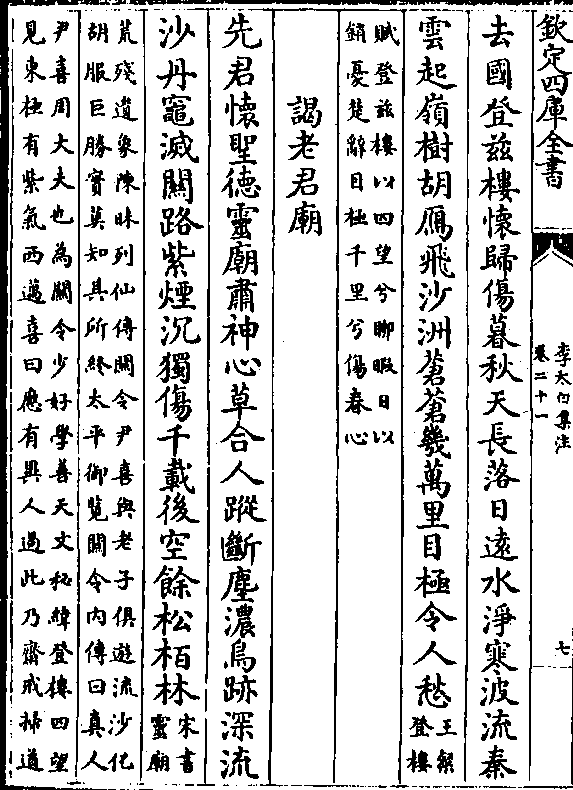 欽定四庫全書
李太白集注
卷二十一
七
去國登茲樓懷歸傷暮秋天長落日遠水淨寒波流秦
雲起嶺樹胡鴈飛沙洲蒼蒼幾萬里目極令人愁
王粲
登樓
賦登茲樓以四望兮聊暇日以
銷憂楚辭目極千里兮傷春心
謁老君廟
先君懷聖德靈廟肅神心草合人蹤斷塵濃鳥跡深流
沙丹竈滅關路紫煙沉獨傷千載後空餘松栢林
宋書
靈廟
荒殘遺象陳昧列仙傳關令尹喜與老子俱遊流沙化
胡服巨勝實莫知其所終太平御覽關令内傳曰真人
尹喜周大夫也為關令少好學善天文秘緯登樓四望
見東極有紫氣西邁喜曰應有異人過此乃齋戒掃道